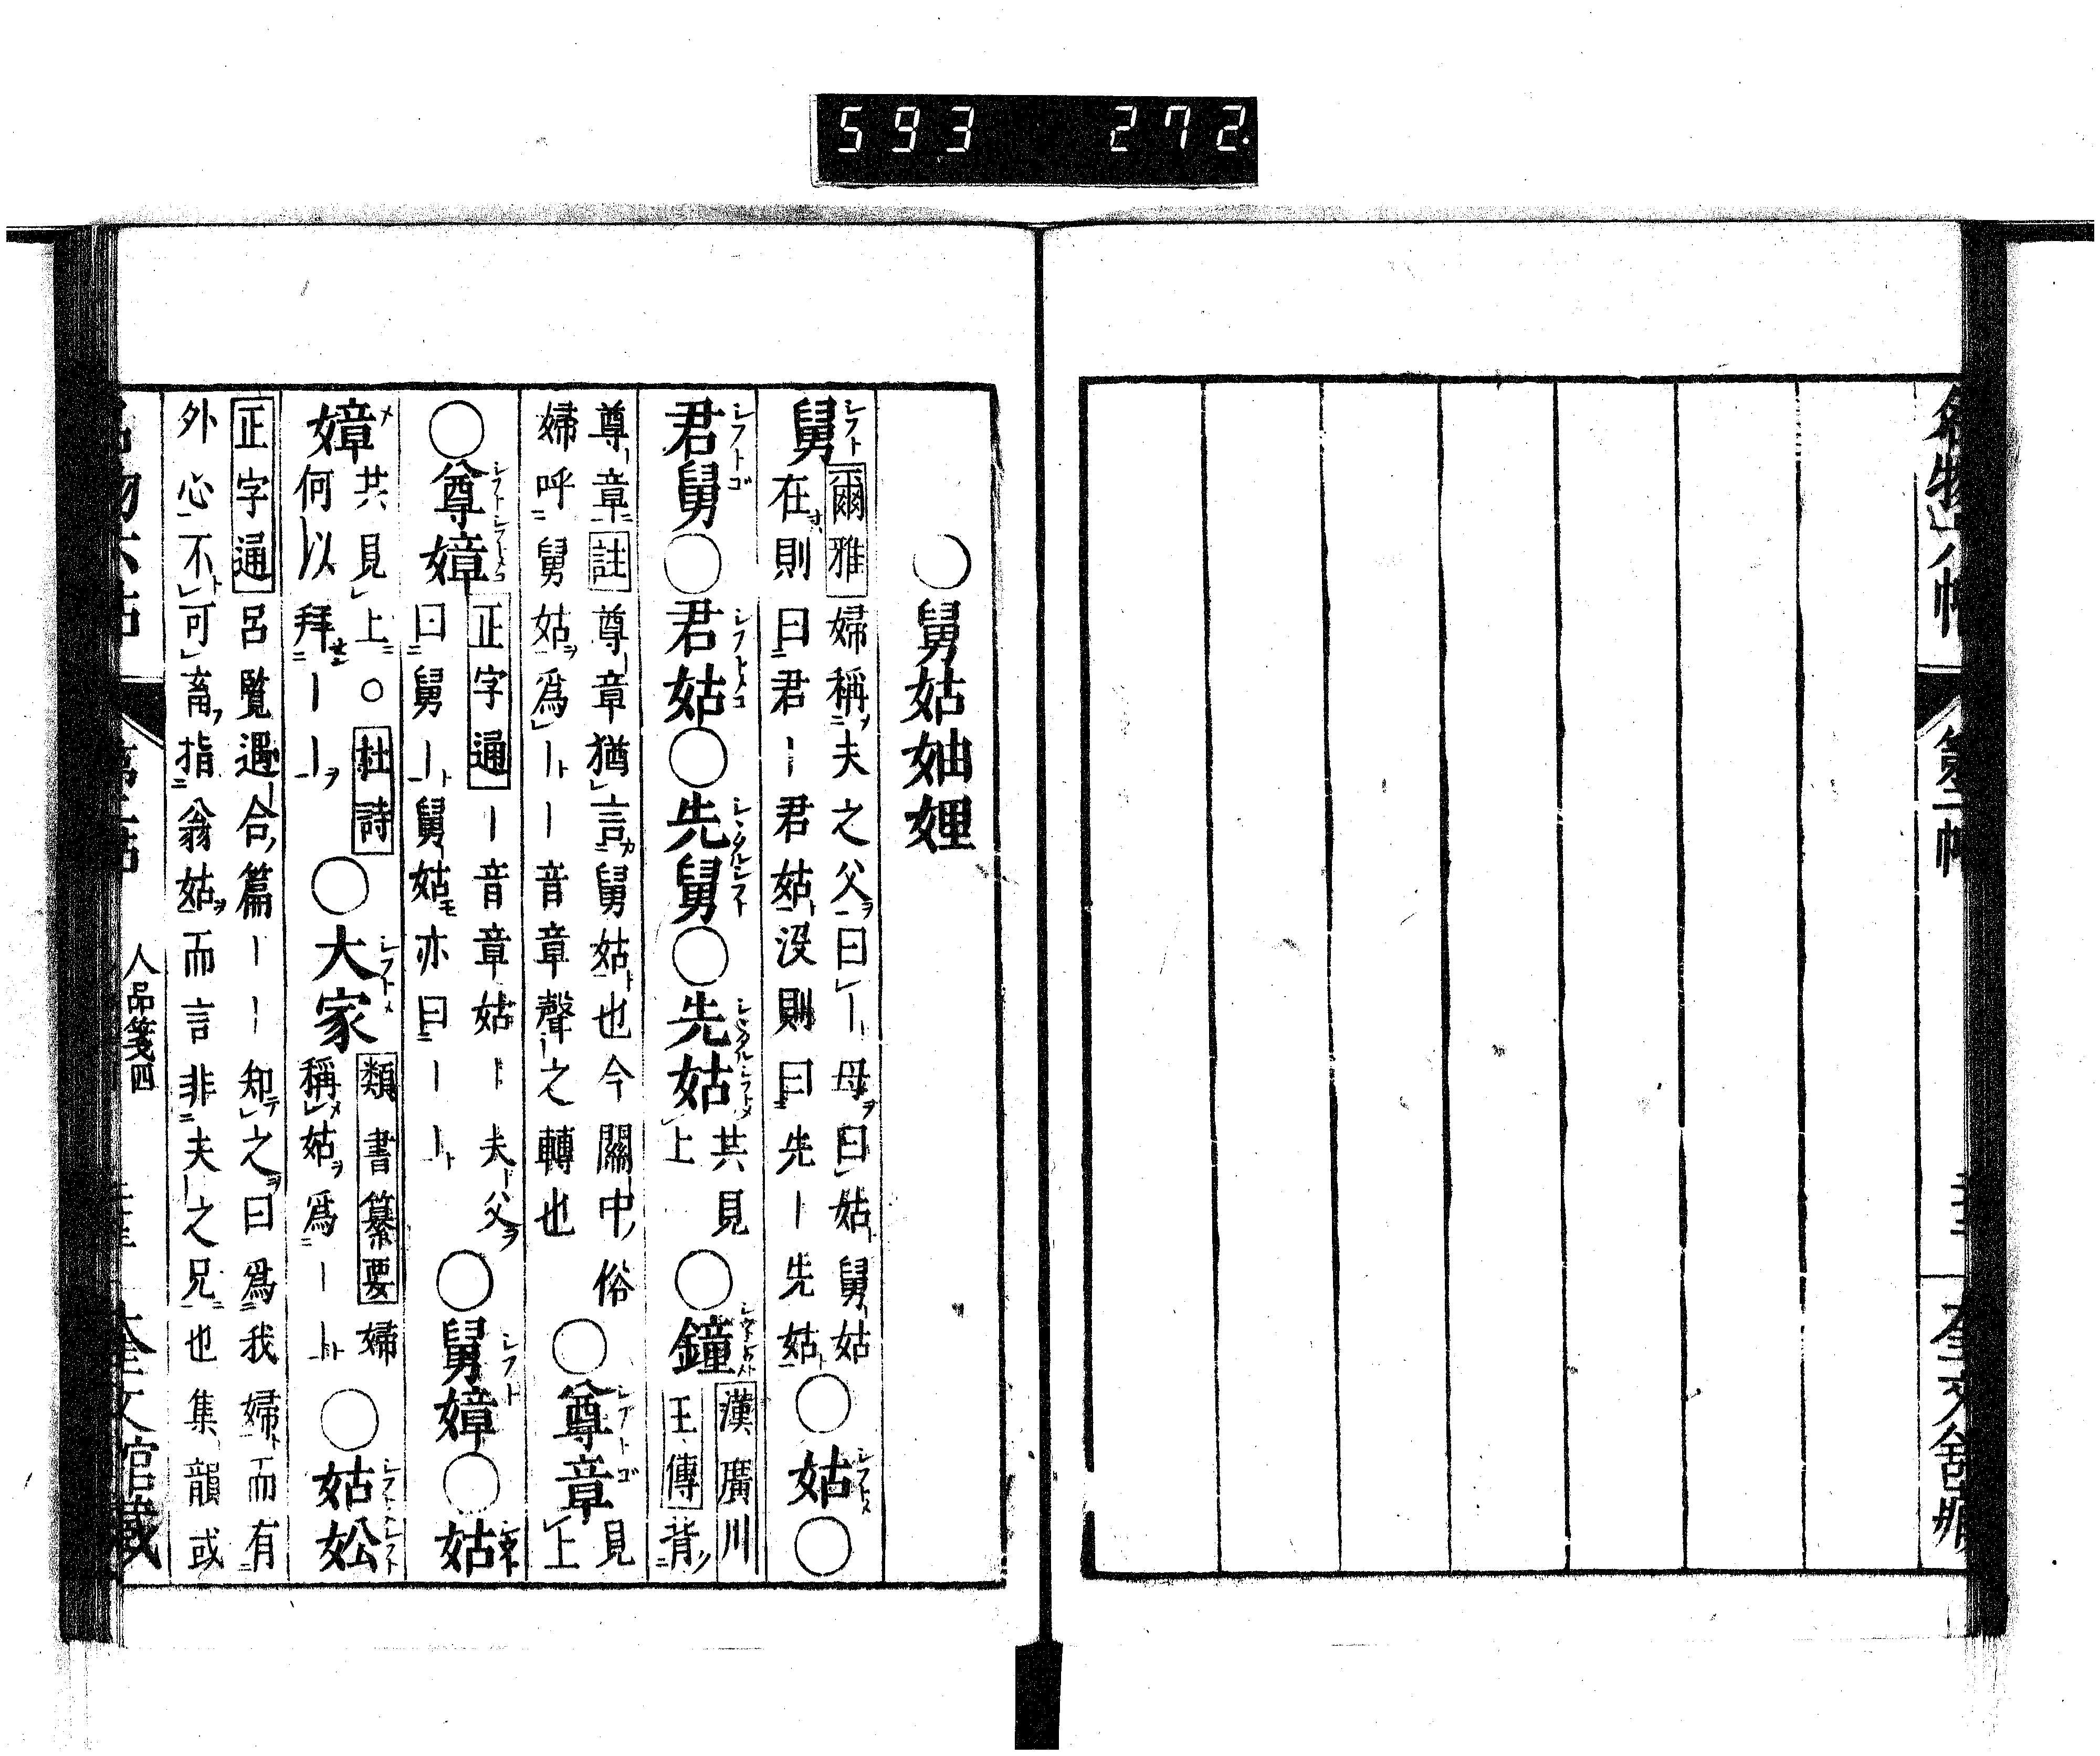 593 272
名物六帖 第二帖
○舅姑妯娌
舅 爾雅 婦稱夫之父曰｜母曰姑舅姑
在則曰君｜君姑没則曰先｜先姑 ○姑○
君舅○君姑○先舅○先姑 共見
上 ○鐘 漢廣川
王傳 背
尊章 註 尊章猶言舅姑也今關中俗
婦呼舅姑爲｜｜音章聲之轉也 ○尊章 見
上
○尊嫜 正字通 ｜音章姑｜夫父
曰舅｜舅姑亦曰｜｜ ○舅嫜○姑
嫜 共見上○杜詩
何以拜｜｜ ○大家 類書纂要 婦
稱姑爲｜｜ ○姑妐
正字通 呂覧遇合篇｜｜知之曰爲我婦而有
外心不可畜指翁姑而言非夫之兄也集韻或
人品箋四